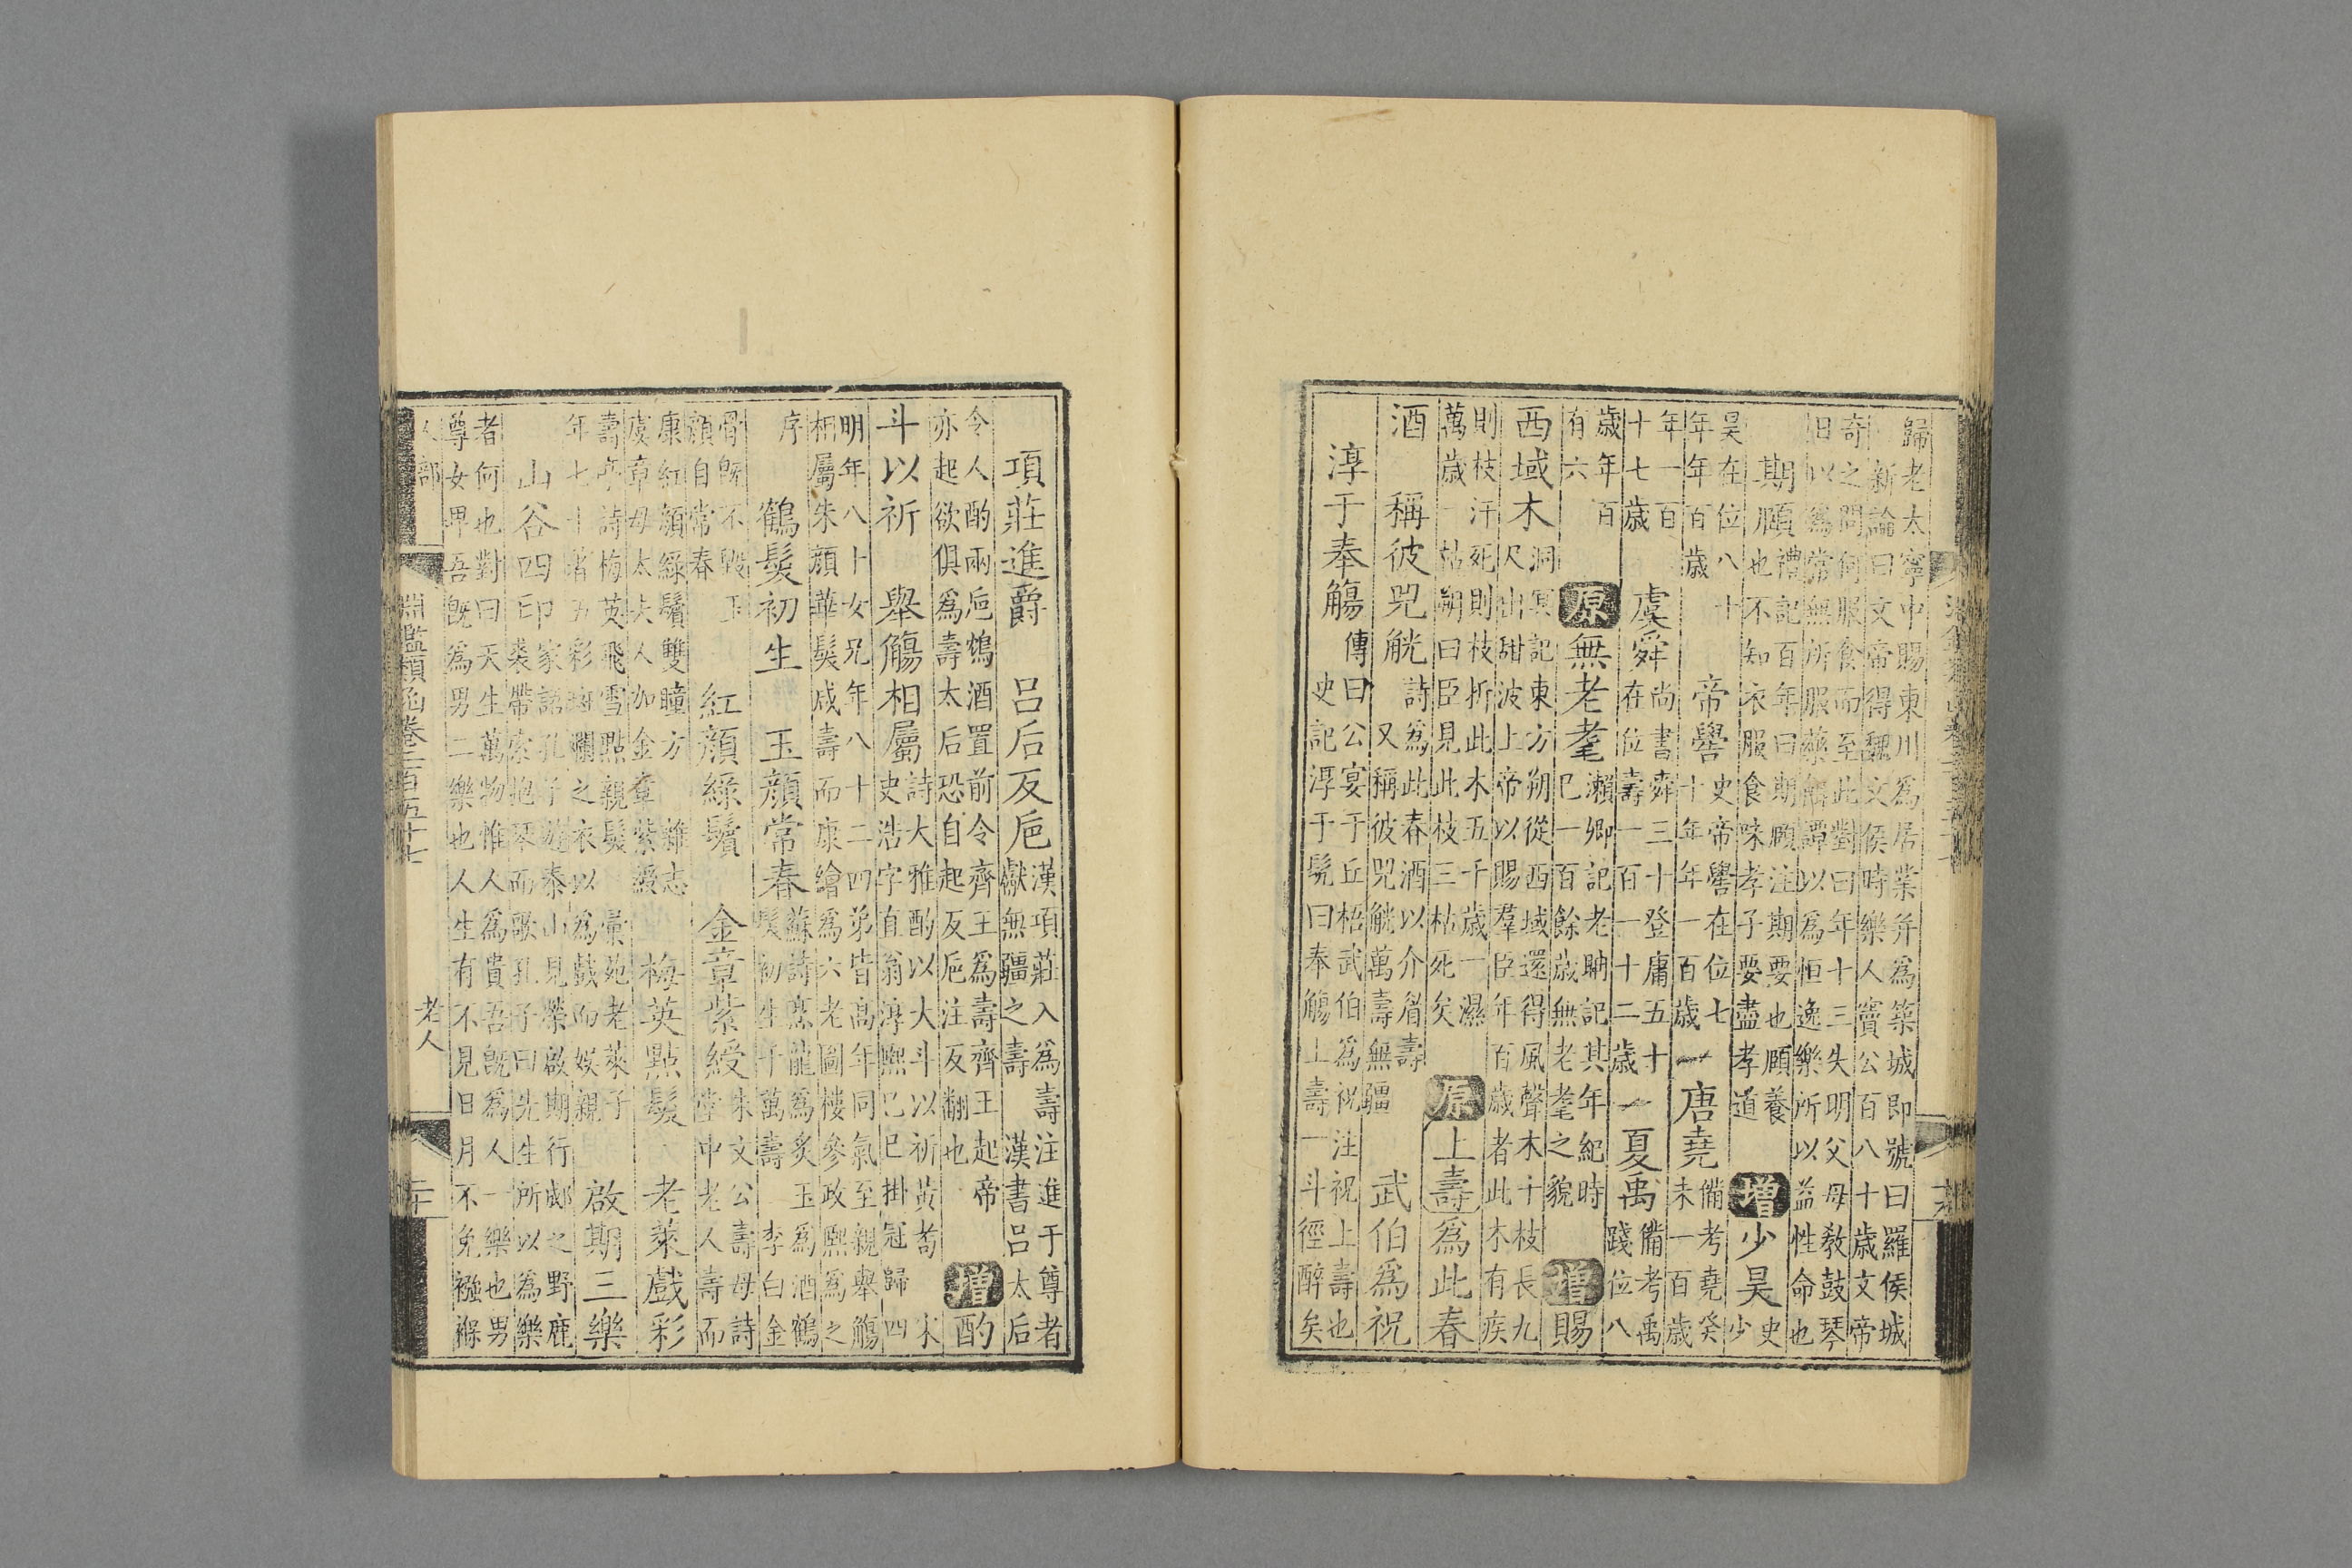 歸老太寧中賜東川爲居業并爲築城即號曰羅侯城
新論曰文帝得魏文侯時樂人竇公百八十歲文帝
奇之問何服食而至此對曰年十三失明父母教鼓琴
日以爲常無所服藥
譚以爲恒逸樂所以益性命也
期頤 禮記百年曰期頤注期要也頤養
也不知衣服食味孝子要盡孝道
增 少昊 史少
昊在位八十
年年百歲
帝嚳 史帝嚳在位七
十年年一百歲
唐堯 備考堯癸
未一百歲
年一百
十七歲
虞舜 尚書舜三十登庸五十
在位壽一百一十二歲
夏禹 備考禹
踐位八
歲年百
有六
原 無老耄 瀨鄉記老聃記其年紀時
已一百餘歲無老耄之貌
增 賜
西域木 洞冥記東方朔從西域還得風聲木十枝長九
尺出甜波上帝以賜羣臣年百歲者此木有疾
則枝汗死則枝折此木五千歲一濕
萬歲一枯朔曰臣見此枝三枯死矣
原 上壽 爲此春
酒 稱彼兕觥 詩爲此春酒以介眉壽
又稱彼兕觥萬壽無疆
武伯爲祝
傳曰公宴于丘梧武伯爲祝注祝上壽也
淳于奉觴 史記淳于髡曰奉觴上壽一斗徑醉矣
項莊進爵 呂后反巵 漢項莊入爲壽注進于尊者
獻無疆之壽 漢書呂太后
令人酌兩巵鴆酒置前令齊王爲壽齊王起帝
亦起欲俱爲壽太后恐自起反巵注反翻也
增 酌
斗以祈 舉觴相屬 詩大雅酌以大斗以祈黃耇 宋
史浩字直翁淳熙己巳掛冠歸四
明年八十女兄年八十二四弟皆高年同氣至親舉觴
相屬朱顏華髮戚壽而康繪爲六老圖樓參政熙爲之
序
鶴髮初生 玉顏常春 蘇詩蒸龍爲炙玉爲酒鶴
髮初生千萬壽 李白金
骨旣不毀玉
顏自常春
紅顏綠鬢 金章紫綬 朱文公壽母詩
堂中老人壽而
康紅顏綠鬢雙瞳方 雜志
虞章母太夫人加金章紫綬
梅英點髮 老萊戲彩
壽亭詩梅英飛雪點親髮 彙苑老萊子
年七十著五彩斑斕之衣以爲戲而娛親
啟期三樂
山谷四印 家語孔子遊泰山見榮啟期行郕之野鹿
裘帶索抱琴而歌孔子曰先生所以爲樂
者何也對曰天生萬物惟人爲貴吾旣爲人一樂也男
尊女卑吾旣爲男二樂也人生有不見日月不免襁褓
人部
淵鑑類函卷二百五十七
老人
二十